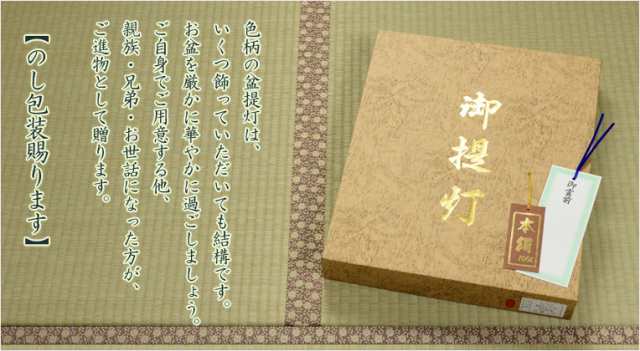 色柄の盆提灯は、
いくつ飾っていただいても結構です。
お盆を厳かに華やかに過ごしましょう。
ご自身でご用意する他、
親族・兄弟・お世話になった方が、
ご進物として贈ります。
【のし包装賜ります】
御提灯
御霊前
本絹